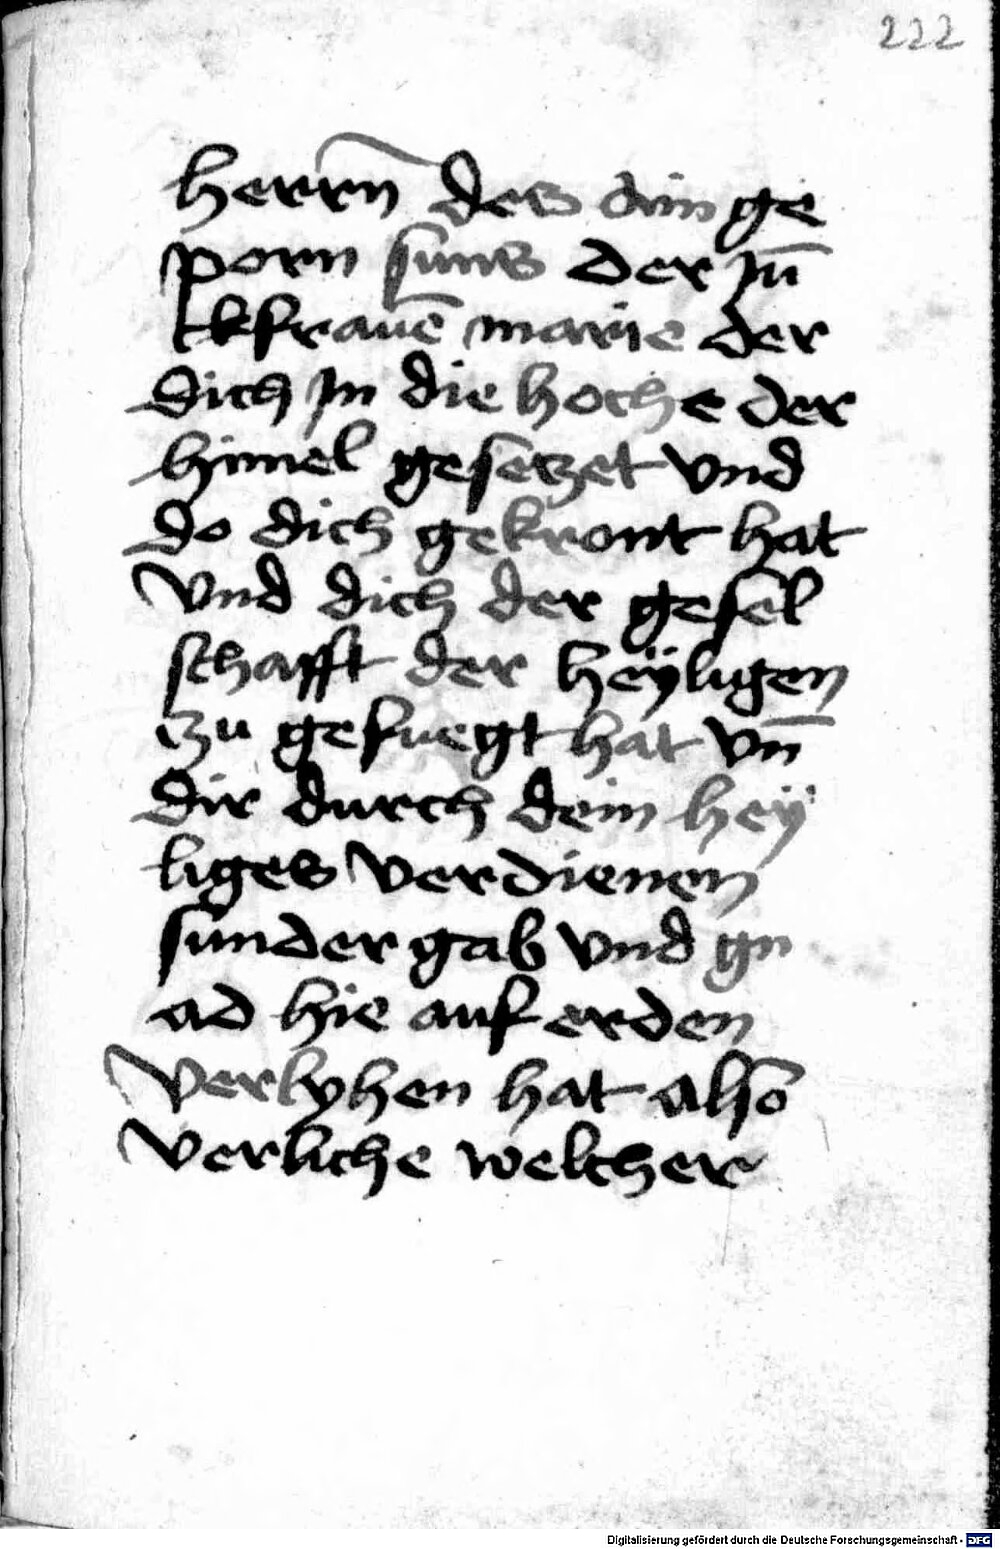 222
herrn̄ des ain ge
porn suns der Jū
ckfrauē marie der
dich Jn die hoche der
himel gesetzet vnd
do dich gekront hat
vnd dich der gesel
schafft der heÿligen
zu gefuegt hat vn̄
dir durch dein heÿ
liges verdienen
sunder gab vnd gn
ad hie auf erden
verlyhen hat also
verliche welcher
Digitalisierung gefördert durch die Deutsche Forschungsgemeinschaft - DFG